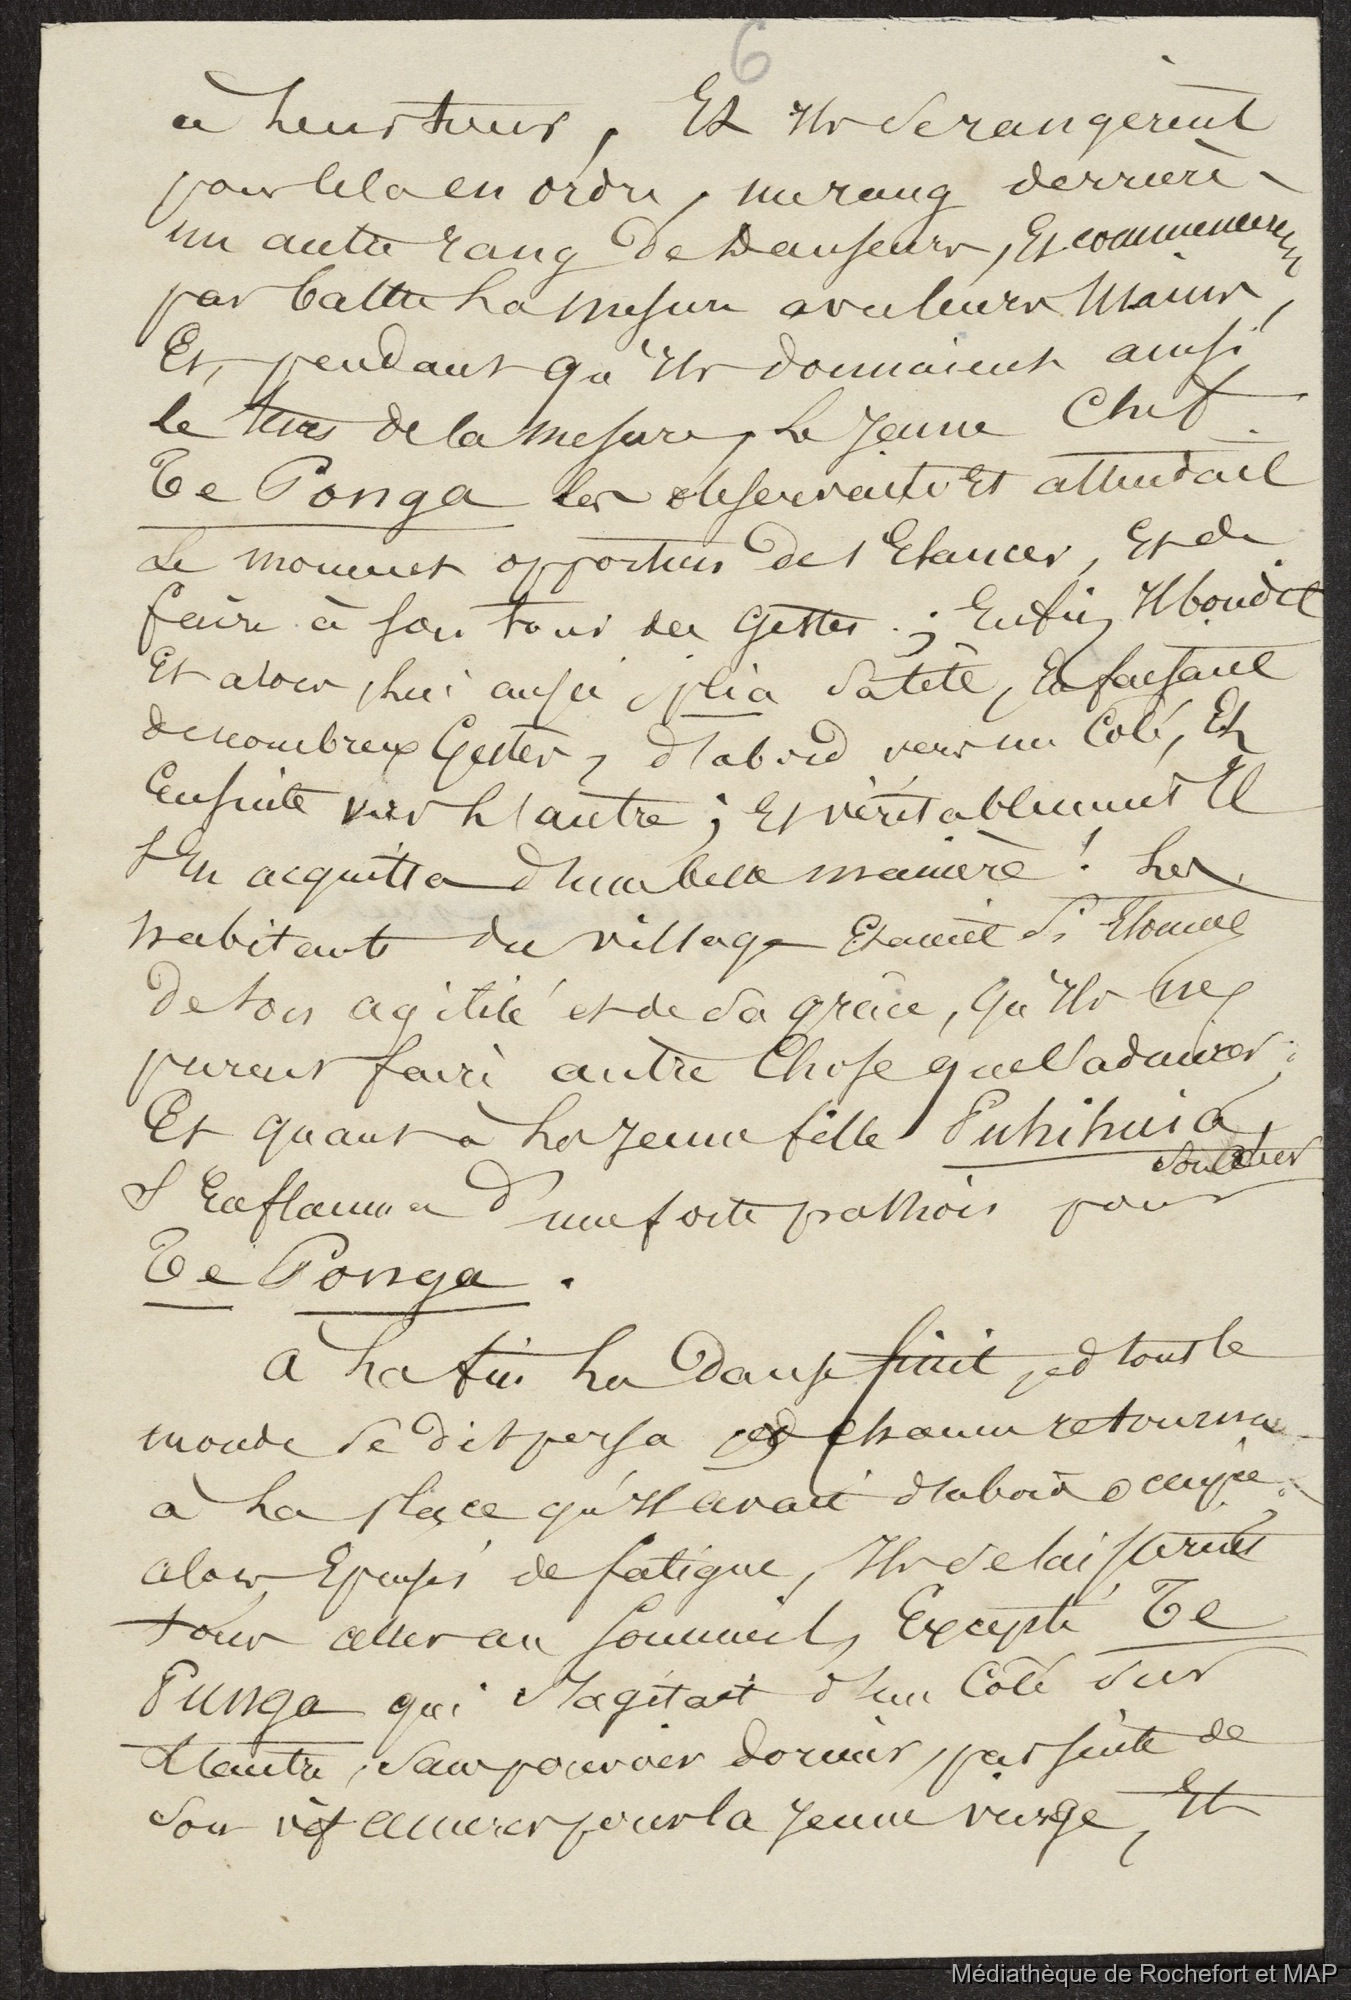 6
à leurs tours, Et Ils se rangèrent
pour cela en ordre, un rang derrière
un autre rang de Danseurs, Et commencèrent
par battre La mesure avec leurs Mains,
Et, pendant qu'Ils donnaient ainsi
le tems de la mesure, Le Jeune Chef
Te Ponga les observait Et attendait
Le moment opportun de s'Elancer, Et de
faire à son tour des Gestes ; Enfin, Il bondit
Et alors, lui aussi plia sa tête, En faisant
de nombreux Gestes, d'abord vers un Coté, Et
Ensuite vers l'autre ; Et véritablement Il
s'En acquitta d'une belle manière ! Les
habitants du village Etaient si Etonnés
De son agilité et de sa grâce, qu'Ils ne
purent faire autre Chose que l'admirer ;
Et quant à La Jeune fille Puhihuia,
son cœur
s'Enflamma d'une forte passion pour
Te Ponga.
A La fin La Danse finit, et tout le
monde se dispersa et chacun retourna
à La place qu'Il avait d'abord occupée.
alors, Epuisés de fatigue, Ils se laissèrent
tous aller au sommeil, Excepté Te
Punga qui s'agitait d'un Coté sur
L'autre, sans pouvoir dormir, par suite de
son vif amour pour la Jeune vierge, Et
Médiathèque de Rochefort et MAP